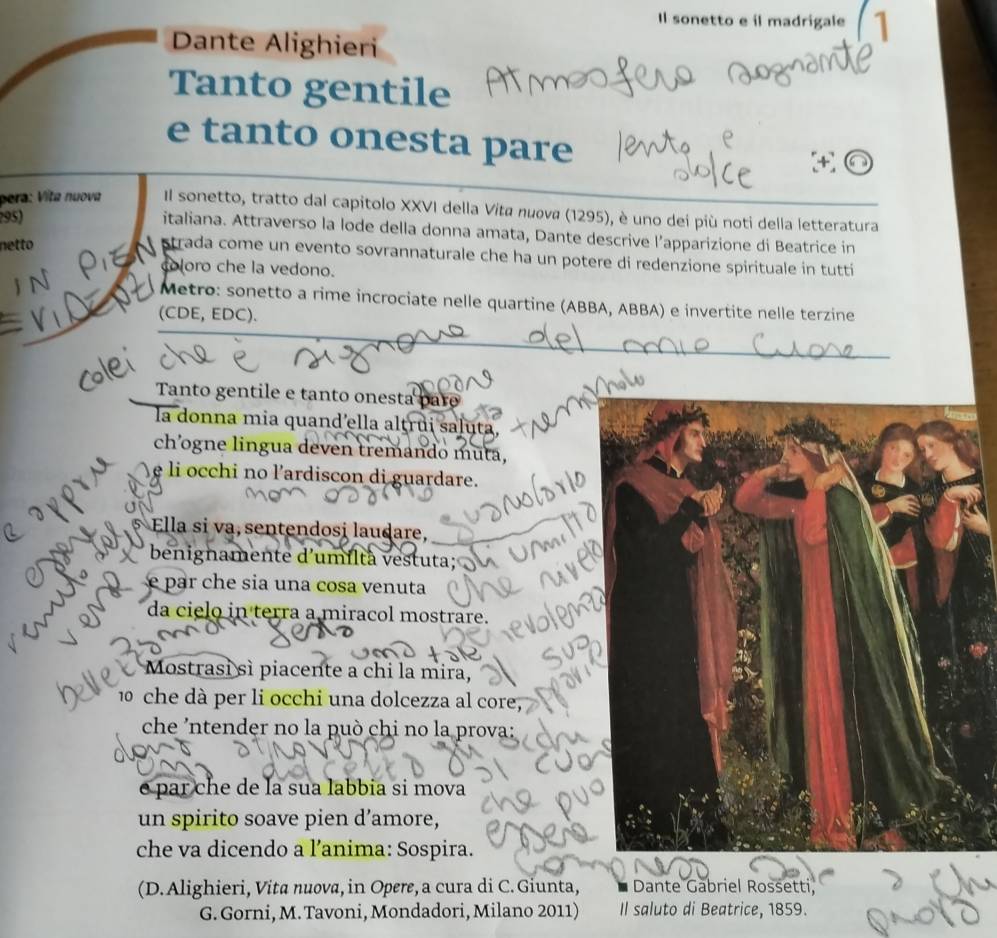 Il sonetto e il madrigale 1
Dante Alighieri
Tanto gentile
e tanto onesta pare
Atmosfera sognante
lento e
dolce
pera: Vita nuova
295)
netto
IN PIENA
EVIDENZA
Il sonetto, tratto dal capitolo XXVI della Vita nuova (1295), è uno dei più noti della letteratura
italiana. Attraverso la lode della donna amata, Dante descrive l'apparizione di Beatrice in
strada come un evento sovrannaturale che ha un potere di redenzione spirituale in tutti
coloro che la vedono.
Metro: sonetto a rime incrociate nelle quartine (ABBA, ABBA) e invertite nelle terzine
(CDE, EDC).
colei che è signora del mio cuore
appare
Tanto gentile e tanto onesta pare
la donna mia quand'ella altrui saluta,
tremando
ammutolisce
ch'ogne lingua deven tremando muta,
e li occhi no l'ardiscon di guardare.
non osano
guardarla
e appare
essere
venuta dal cielo
Ella si va, sentendosi laudare,
benignamente d'umiltà vestuta;
di umiltà
che rivela
benevolenza
e par che sia una cosa venuta
da cielo in terra a miracol mostrare.
Mostrasi sì piacente a chi la mira,
bellezza
al suo
10 che dà per li occhi una dolcezza al core,
che 'ntender no la può chi no la prova:
dona attraverso gli occhi
una dolcezza al cuore
e par che de la sua labbia si mova
che può
essere
un spirito soave pien d'amore,
che va dicendo a l'anima: Sospira.
compreso solo
da chi
prova
(D. Alighieri, Vita nuova, in Opere, a cura di C. Giunta,
G. Gorni, M. Tavoni, Mondadori, Milano 2011)
Dante Gabriel Rossetti,
Il saluto di Beatrice, 1859.